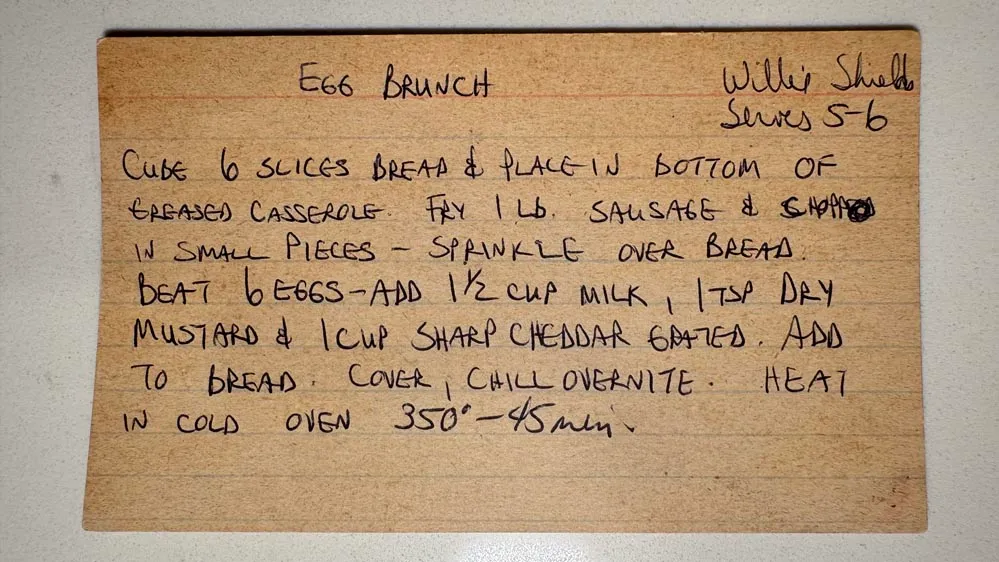 EGG BRUNCH
Willie Shields
Serves 5-6
CUBE 6 SLICES BREAD & PLACE IN BOTTOM OF
GREASED CASSEROLE. FRY 1 LB. SAUSAGE & CHOPPED
IN SMALL PIECES - SPRINKLE OVER BREAD.
BEAT 6 EGGS - ADD 1 1/2 CUP MILK, 1 TSP DRY
MUSTARD & 1 CUP SHARP CHEDDAR GRATED. ADD
TO BREAD. COVER, CHILL OVERNITE. HEAT
IN COLD OVEN 350° - 45 min.